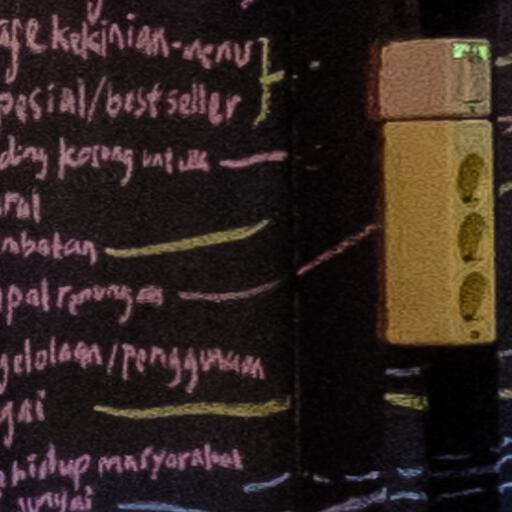 kekinian-menu
pesial/best seller
ding kosong untuk
ral
mbatan
gelolaan/penggunaan
gai
hidup masyarakat